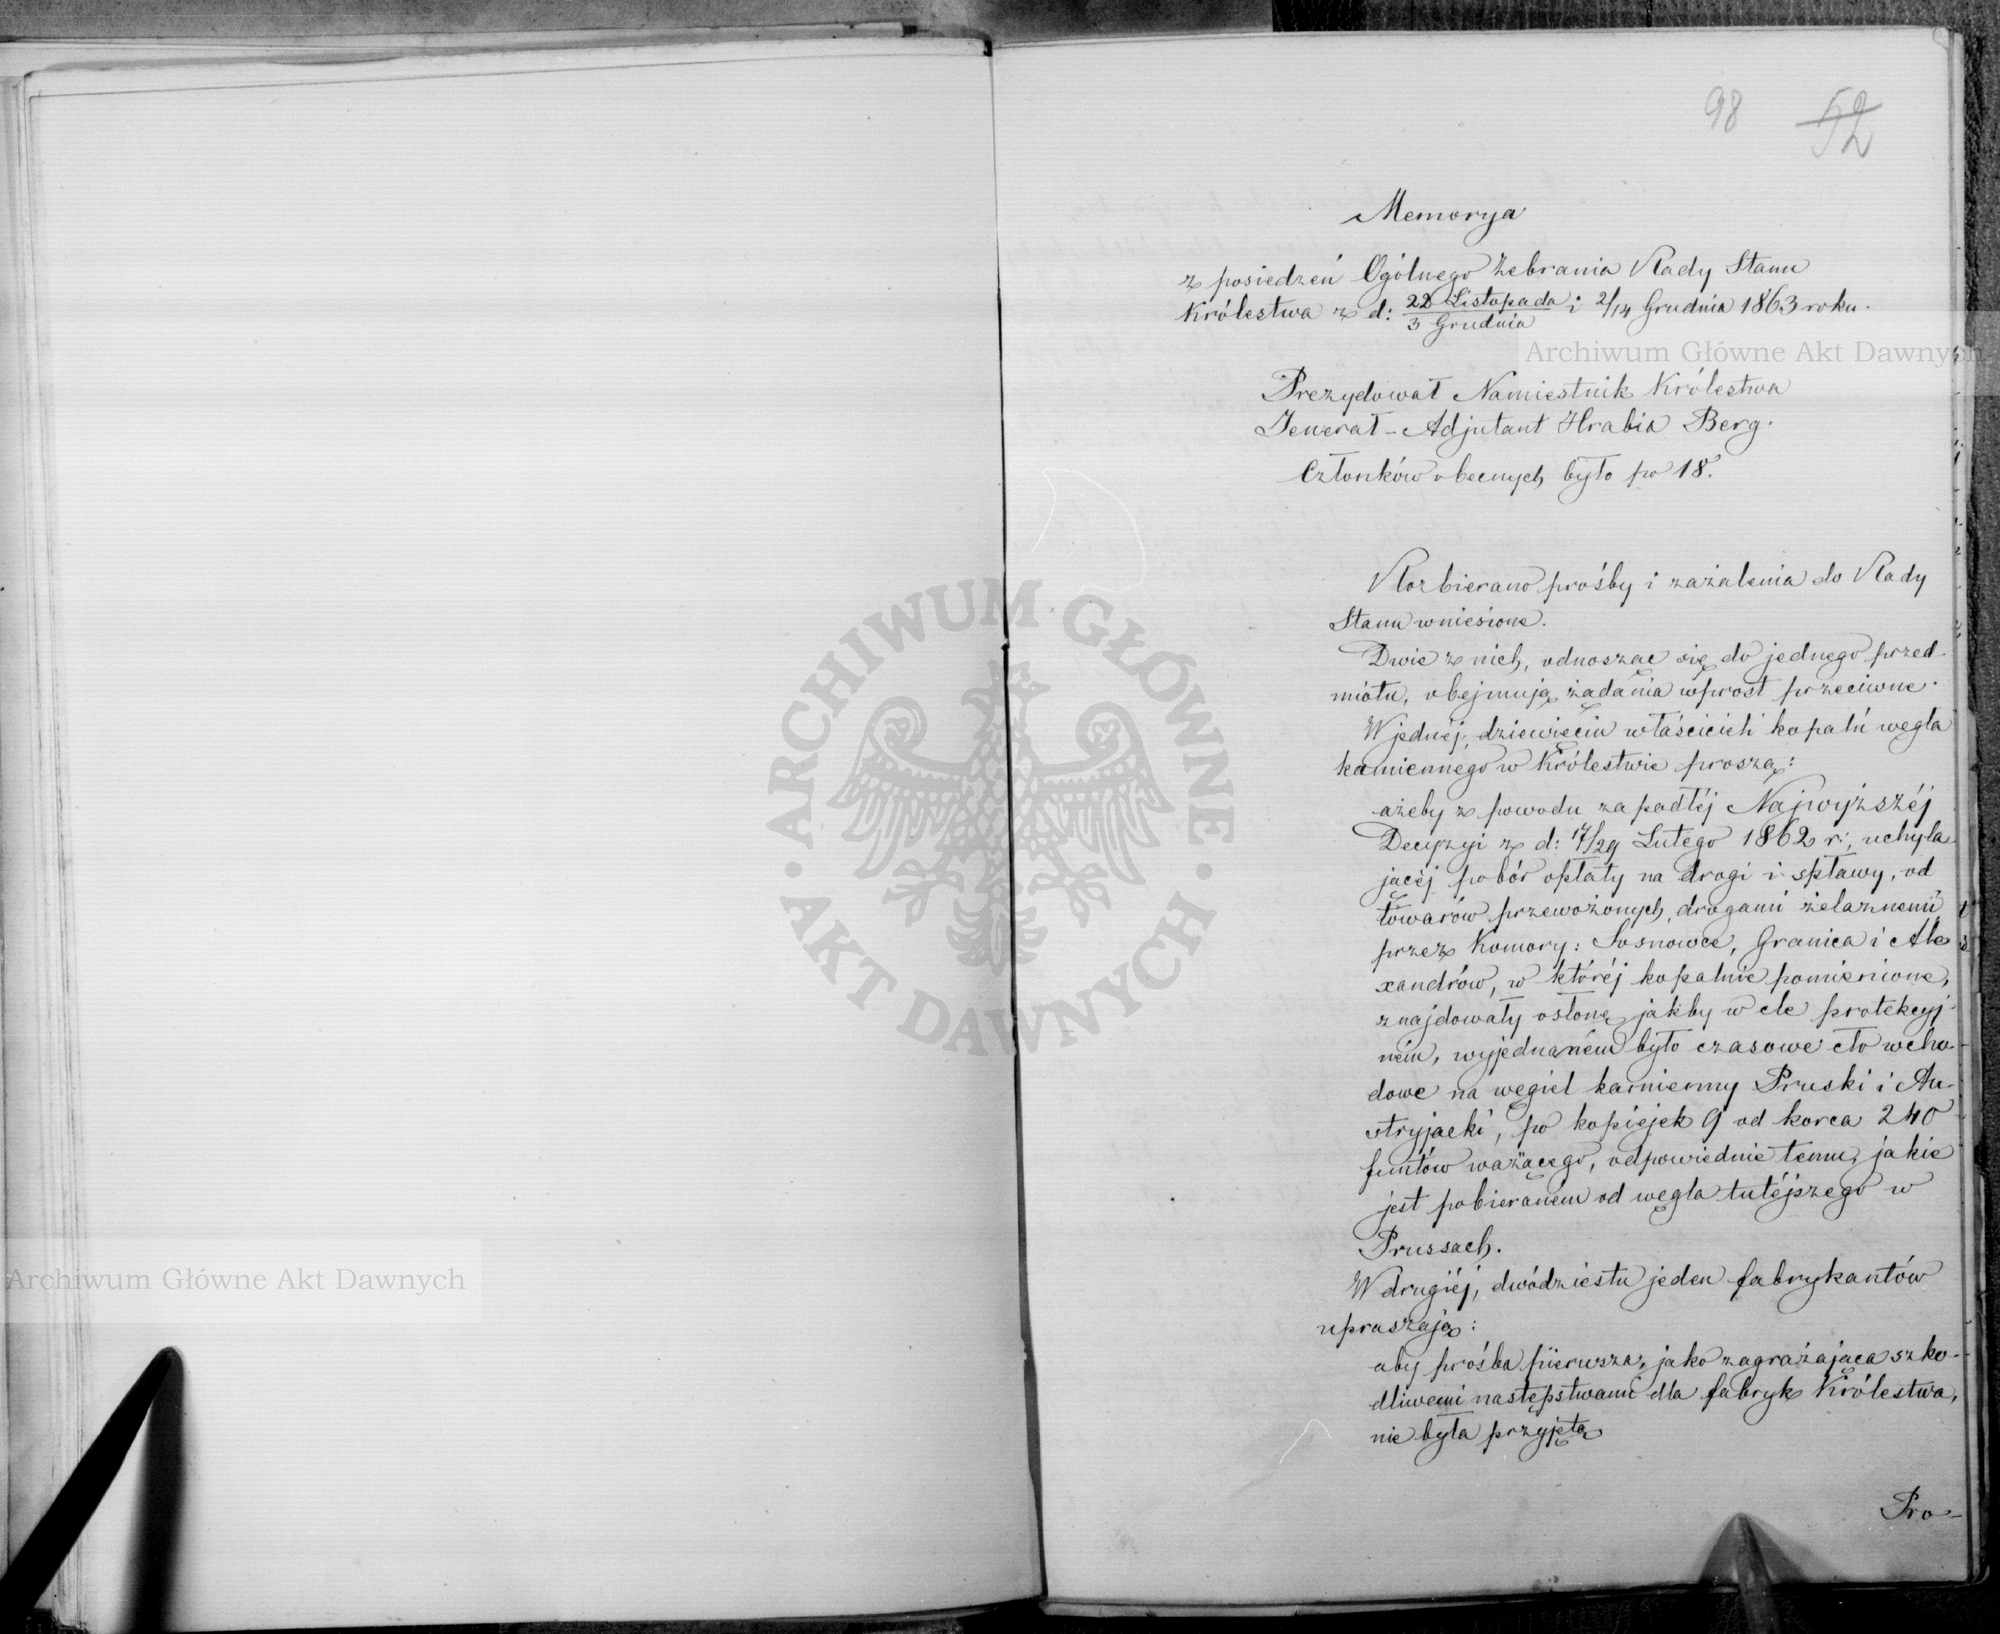 98 52
Memorya
z posiedzeń Ogólnego Zebrania Rady Stanu
Królestwa z d: 22 Listopada / 3 Grudnia i 2/14 Grudnia 1863 roku.
Archiwum Główne Akt Dawnych
Prezydował Namiestnik Królestwa
Jenerał-Adjutant Hrabia Berg.
Członków obecnych było po 18.
Rozbierano prośby i zażalenia do Rady
Stanu wniesione.
Dwie z nich, odnosząc się do jednego przed-
miotu, obejmują żądania wprost przeciwne.
W jednéj, dziewięciu właścicieli kopalń węgla
kamiennego w Królestwie proszą:
ażeby z powodu zapadłéj Najwyższéj
Decyzyi z d: 17/29 Lutego 1862 r:, uchyla-
jącéj pobór opłaty na drogi i spławy, od
towarów przewożonych drogami żelaznemi
przez Komory: Sosnowce, Granica i Ale-
xandrów, w któréj kopalnie pomienione,
znajdowały osłonę jakby w cle protekcyj-
ném, wyjednaném było czasowe cło wcho-
dowe na węgiel kamienny Pruski i Au-
stryjacki, po kopiejek 9 od korca 240
funtów ważącego, odpowiednie temu, jakie
jest pobieranem od węgla tutéjszego w
Prussach.
W drugiéj, dwódziestu jeden fabrykantów
upraszają:
aby prośba pierwsza, jako zagrażająca szko-
dliwemi następstwami dla fabryk Królestwa,
nie była przyjętą
Pro-
ARCHIWUM GŁÓWNE · AKT DAWNYCH ·
Archiwum Główne Akt Dawnych